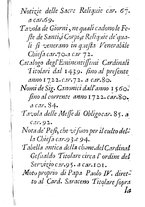 Notizie delle Sacre Reliquie car. 67.
a car. 69.
Tavola de Giorni, ne quali cadono le Fe-
ste de Santi, Corpi, e Reliquie de qua-
li si venerano in questa Venerabile
Chiesa car. 70. a car. 71.
Catalogo degl'Eminentissimi Cardinali
Titolari dal 1439. sino al presente
anno 1722. car. 72. a car. 80.
Nomi de Sig. Canonici dall'anno 1560.
al corrente anno 1722. car. 80. a car.
84.
Tavola delle Messe di Obligo car. 85. a
car. 92.
Nota de' Pesi, che vi sono per li tea-
chi della Chiesa car. 93.
Tabella antica della chiesa del Cardinal
Gesualdo Titolare circa l'ordine del
Servizio car. 95. a car. 101.
Moto proprio di Papa Paolo IV. diret-
to al Card. Saraceno Titolare sopra
la